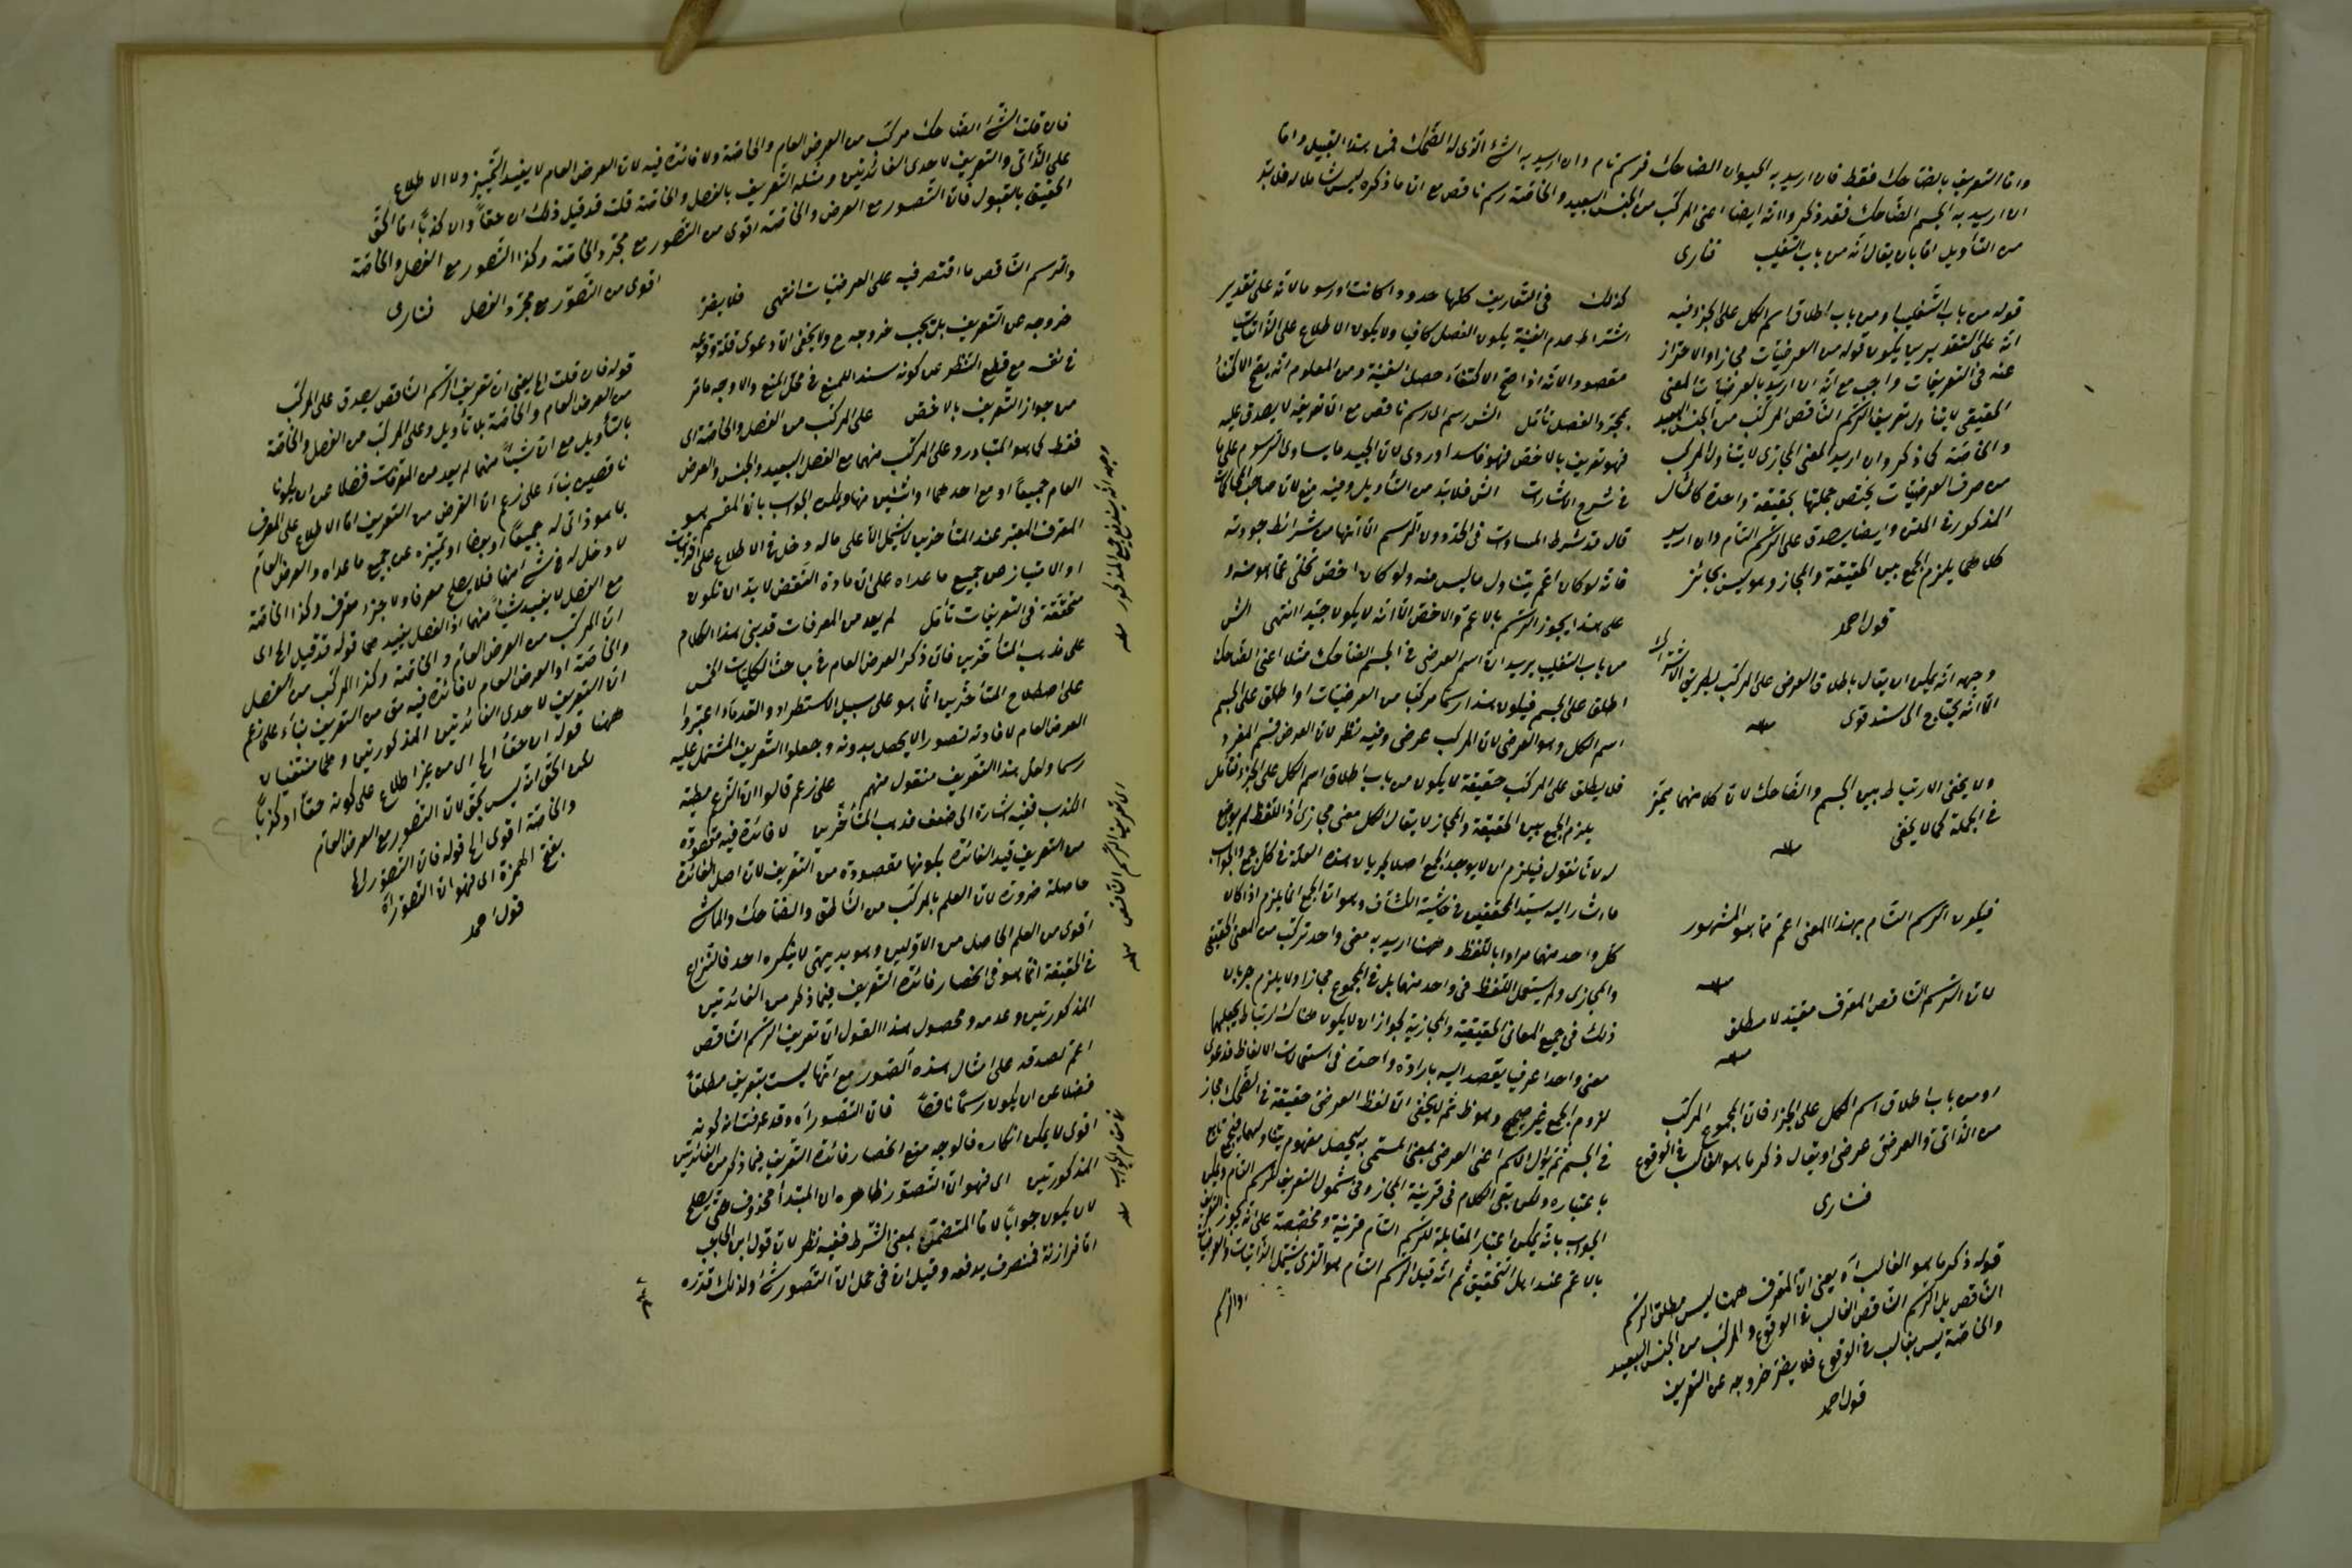 وانا التعريف بالضاحك فقط فان اريد به الحيوان الضاحك فرسم تام وان اريد به الشئ الذى له الضحك فمن هذا القبيل واما
ان اريد به الجسم الضاحك فقد ذكروا انه ايضا اعنى المركب من الجنس البعيد والخاصة رسم ناقص مع ان ما ذكره ليس شاملا له فلا بد
من التأويل اما بان يقال انه من باب التغليب فنارى
قوله من باب التغليب او من باب اطلاق اسم الكل على الجزء فيه
انه على التقديرين يكون قوله من العرضيات مجازا والاحتراز
عنه فى التعريفات واجب مع انه ان اريد بالعرضيات المعنى
الحقيقى لا يتناول تعريف الرسم الناقص المركب من الجنس البعيد
والخاصة كما ذكر وان اريد المعنى المجازى لا يتناول المركب
من صرف العرضيات يختص جملتها بحقيقة واحدة كالمثال
المذكور فى المتن وايضا يصدق على الرسم التام وان اريد
كلاهما يلزم الجمع بين الحقيقة والمجاز وهو ليس بجائز
قول احمد
وجهه انه يمكن ان يقال باطلاق العرضى على المركب بطريق الاشتراك
الا انه يحتاج الى سند قوى
ولا يخفى الارتباط بين الجسم والضاحك لان كلا منهما يتميز
فى الجملة كما لا يخفى
فيكون الرسم التام بهذا المعنى اعم مما هو المشهور
لان الرسم الناقص المعرف مقيد لا مطلق
او من باب اطلاق اسم الكل على الجزء فان المجموع المركب
من الذاتى والعرضى عرضى او يقال ذكر ما هو الغالب فى الوقوع
فنارى
قوله ذكر ما هو الغالب اه يعنى ان المعرف ههنا ليس مطلق الرسم
الناقص بل الرسم الناقص الغالب فى الوقوع والمركب من الجنس البعيد
والخاصة ليس بغالب فى الوقوع فلا يضر خروجه عن التعريف
قول احمد
كذلك فى التعاريف كلها حدودا كانت او رسوما لانه على تقدير
اشتراط عدم الغنية يكون الفصل كافيا ولا يكون الاطلاع على الذاتيات
مقصودا لانه اذا صح الاكتفاء حصل الغنية ومن المعلوم انه يصح الاكتفاء
بمجرد الفصل تأمل الش رسم اما رسم ناقص مع ان تعريفه لا يصدق عليه
فهو تعريف بالاخص فهو فاسد اوردى لان الجيد ما يساوى المرسوم على ما
فى شرح الاشارات الش فلا بد من التأويل وفيه منع لان صاحب المحاكمات
قال قد شرط المساوات فى الحد دون الرسم الا انها من شرائط جودته
فانه لو كان اعم يتناول ما ليس منه ولو كان اخص تخلى عما هو منه و
على هذا يجوز الرسم بالاعم والاخص الا انه لا يكون جيدا انتهى الش
من باب التغليب يريد ان اسم العرضى فى الجسم الضاحك مثلا اعنى الضاحك
اطلق على الجسم فيكون هذا رسما مركبا من العرضيات او اطلق على الجسم
اسم الكل وهو العرضى لان المركب عرضى وفيه نظر لان العرض قسم المفرد
فلا يطلق على المركب حقيقة لا يكون من باب اطلاق اسم الكل على الجزء فتأمل
يلزم الجمع بين الحقيقة والمجاز لا يقال الكل معنى مجازى اذ اللفظ لم يوضع
له لانا نقول فيلزم ان لا يوجد الجمع اصلا لجريان هذه العلة فى كل جمع والجواب
ما اشار اليه سيد المحققين فى حاشية الكشاف وهو ان الجمع انما يلزم اذا كان
كل واحد منهما مرادا باللفظ وههنا اريد به معنى واحد تركب من المعنى الحقيقى
والمجازى ولم يستعمل اللفظ فى واحد منهما بل فى المجموع مجازا ولا يلزم جريان
ذلك فى جميع المعانى الحقيقية والمجازية لجواز ان لا يكون هناك ارتباط يجعلهما
معنى واحدا عرفيا يقصد اليه بارادة واحدة فى استعمالات الالفاظ فدعوى
لزوم الجمع غير صحيح وهو ظ ثم لا يخفى ان لفظ العرضى حقيقة فى الضحك مجاز
فى الجسم ثم يؤل الاسم اعنى العرضى بمعنى المسمى به ليحصل مفهوم يتناولهما فيجمع
باعتباره ولكن بقى الكلام فى قرينة المجاز وفى شمول التعريف للرسم التام ويمكن
الجواب بانه يمكن اعتبار المقابلة للرسم التام قرينة ومخصصة على انه يجوز التعريف
بالاعم عند اهل التحقيق ثم انه قيل الرسم التام هو الذى يشتمل الذاتيات والعرضيات
والرسم
فان قلت الشئ الضاحك مركب من العرض العام والخاصة ولا فائدة فيه لان العرض العام لا يفيد التمييز ولا الاطلاع
على الذاتى والتعريف لاحدى الفائدتين ومثله التعريف بالفصل والخاصة قلت قد قيل ذلك ان حقا وان كذبا اما الحق
الحقيق بالقبول فان التصور مع العرض والخاصة اقوى من التصور مع مجرد الخاصة وكذا التصور مع الفصل والخاصة
اقوى من التصور مع مجرد الفصل فنارى
والرسم الناقص ما اقتصر فيه على العرضيات انتهى فلا يضر
خروجه عن التعريف بل يجب خروجه ح ولا يخفى ان دعوى قلة وقوعه
فى نفسه مع قطع النظر عن كونه سندا للمنع فى محل المنع والاوجه ما مر
من جواز التعريف بالاخص على المركب من الفصل والخاصة اى
فقط كما هو المتبادر وعلى المركب منهما مع الفصل البعيد والجنس والعرض
العام جميعا او مع احدهما او اثنين منها ويمكن الجواب بان المقسم هو
المعرف المعتبر عند المتأخرين لا يشتمل الا على ما له دخل فى الاطلاع على الذاتيات
او الامتياز عن جميع ما عداه على ان مادة النقض لا بد ان تكون
متحققة فى التعريفات تأمل لم يعد من المعرفات قد يبنى هذا الكلام
على مذهب المتأخرين فان ذكر العرض العام فى باحث الكليات الخمس
على اصطلاح المتأخرين انما هو على سبيل الاستطراد والقدماء اعتبروا
العرض العام لافادته تصورا لا يحصل بدونه وجعلوا التعريف المشتمل عليه
رسما ولعل هذا التعريف منقول منهم على زعم قالوا ان الزعم مطية
الكذب ففيه اشارة الى ضعف مذهب المتأخرين لا فائدة فيه مقصودة
من التعريف قيد الفائدة بكونها مقصودة من التعريف لان اصل الفائدة
حاصلة ضرورة لان العلم بالمركب من الناطق والضاحك والماشى
اقوى من العلم الحاصل من الاولين وهو بديهى لا ينكره احد فالنزاع
فى الحقيقة انما هو فى انحصار فائدة التعريف فيما ذكر من الفائدتين
المذكورتين وعدمه ومحصول هذا القول ان تعريف الرسم الناقص
اعم لصدقه على امثال هذه الصور مع انها ليست بتعريف مطلقا
فضلا عن ان يكون رسما ناقصا فان التصور اه وقد عرفت انه كونه
اقوى لا يمكن انكاره فالوجه منع انحصار فائدة التعريف فيما ذكر من الفائدتين
المذكورتين اى فهو ان التصور ظاهره ان المبتدأ محذوف حتى يصلح
لان يكون جوابا لاما المتضمن لمعنى الشرط ففيه نظر لان قول ابن الحاجب
اما فرازنة فمنصرف يدفعه وقيل ان فى محل ان التصور شئ ولذلك قدره
قوله فان قلت الخ يعنى ان تعريف الرسم الناقص يصدق على المركب
من العرض العام والخاصة بلا تأويل وعلى المركب من الفصل والخاصة
بالتأويل مع ان شيئا منهما لم يعد من المعرفات فضلا عن ان يكونا
ناقصين بناء على زعم ان الغرض من التعريف اما الاطلاع على المعرف
بما هو ذاتى له جميعا او بعضا او تمييزه عن جميع ما عداه والعرض العام
لا دخل له فى شئ منهما فلا يصلح معرفا ولا جزء معرف وكذا الخاصة
مع الفصل لا يفيد شيئا منهما اذ الفصل يفيدهما قوله قد قيل الخ اى
ان المركب من العرض العام والخاصة وكذا المركب من الفصل
والخاصة او العرض العام لا فائدة فيه من التعريف بناء على زعم
ان التعريف لاحدى الفائدتين المذكورتين وهما منتفيان
ههنا قوله ان حقا الخ اى من غير اطلاع على كونه حقا او كذبا
لكن الحق انه ليس بحق لان التصور مع العرض العام
والخاصة اقوى الخ قوله فان التصور الخ
بفتح الهمزة اى فهو ان التصور اه
قول احمد